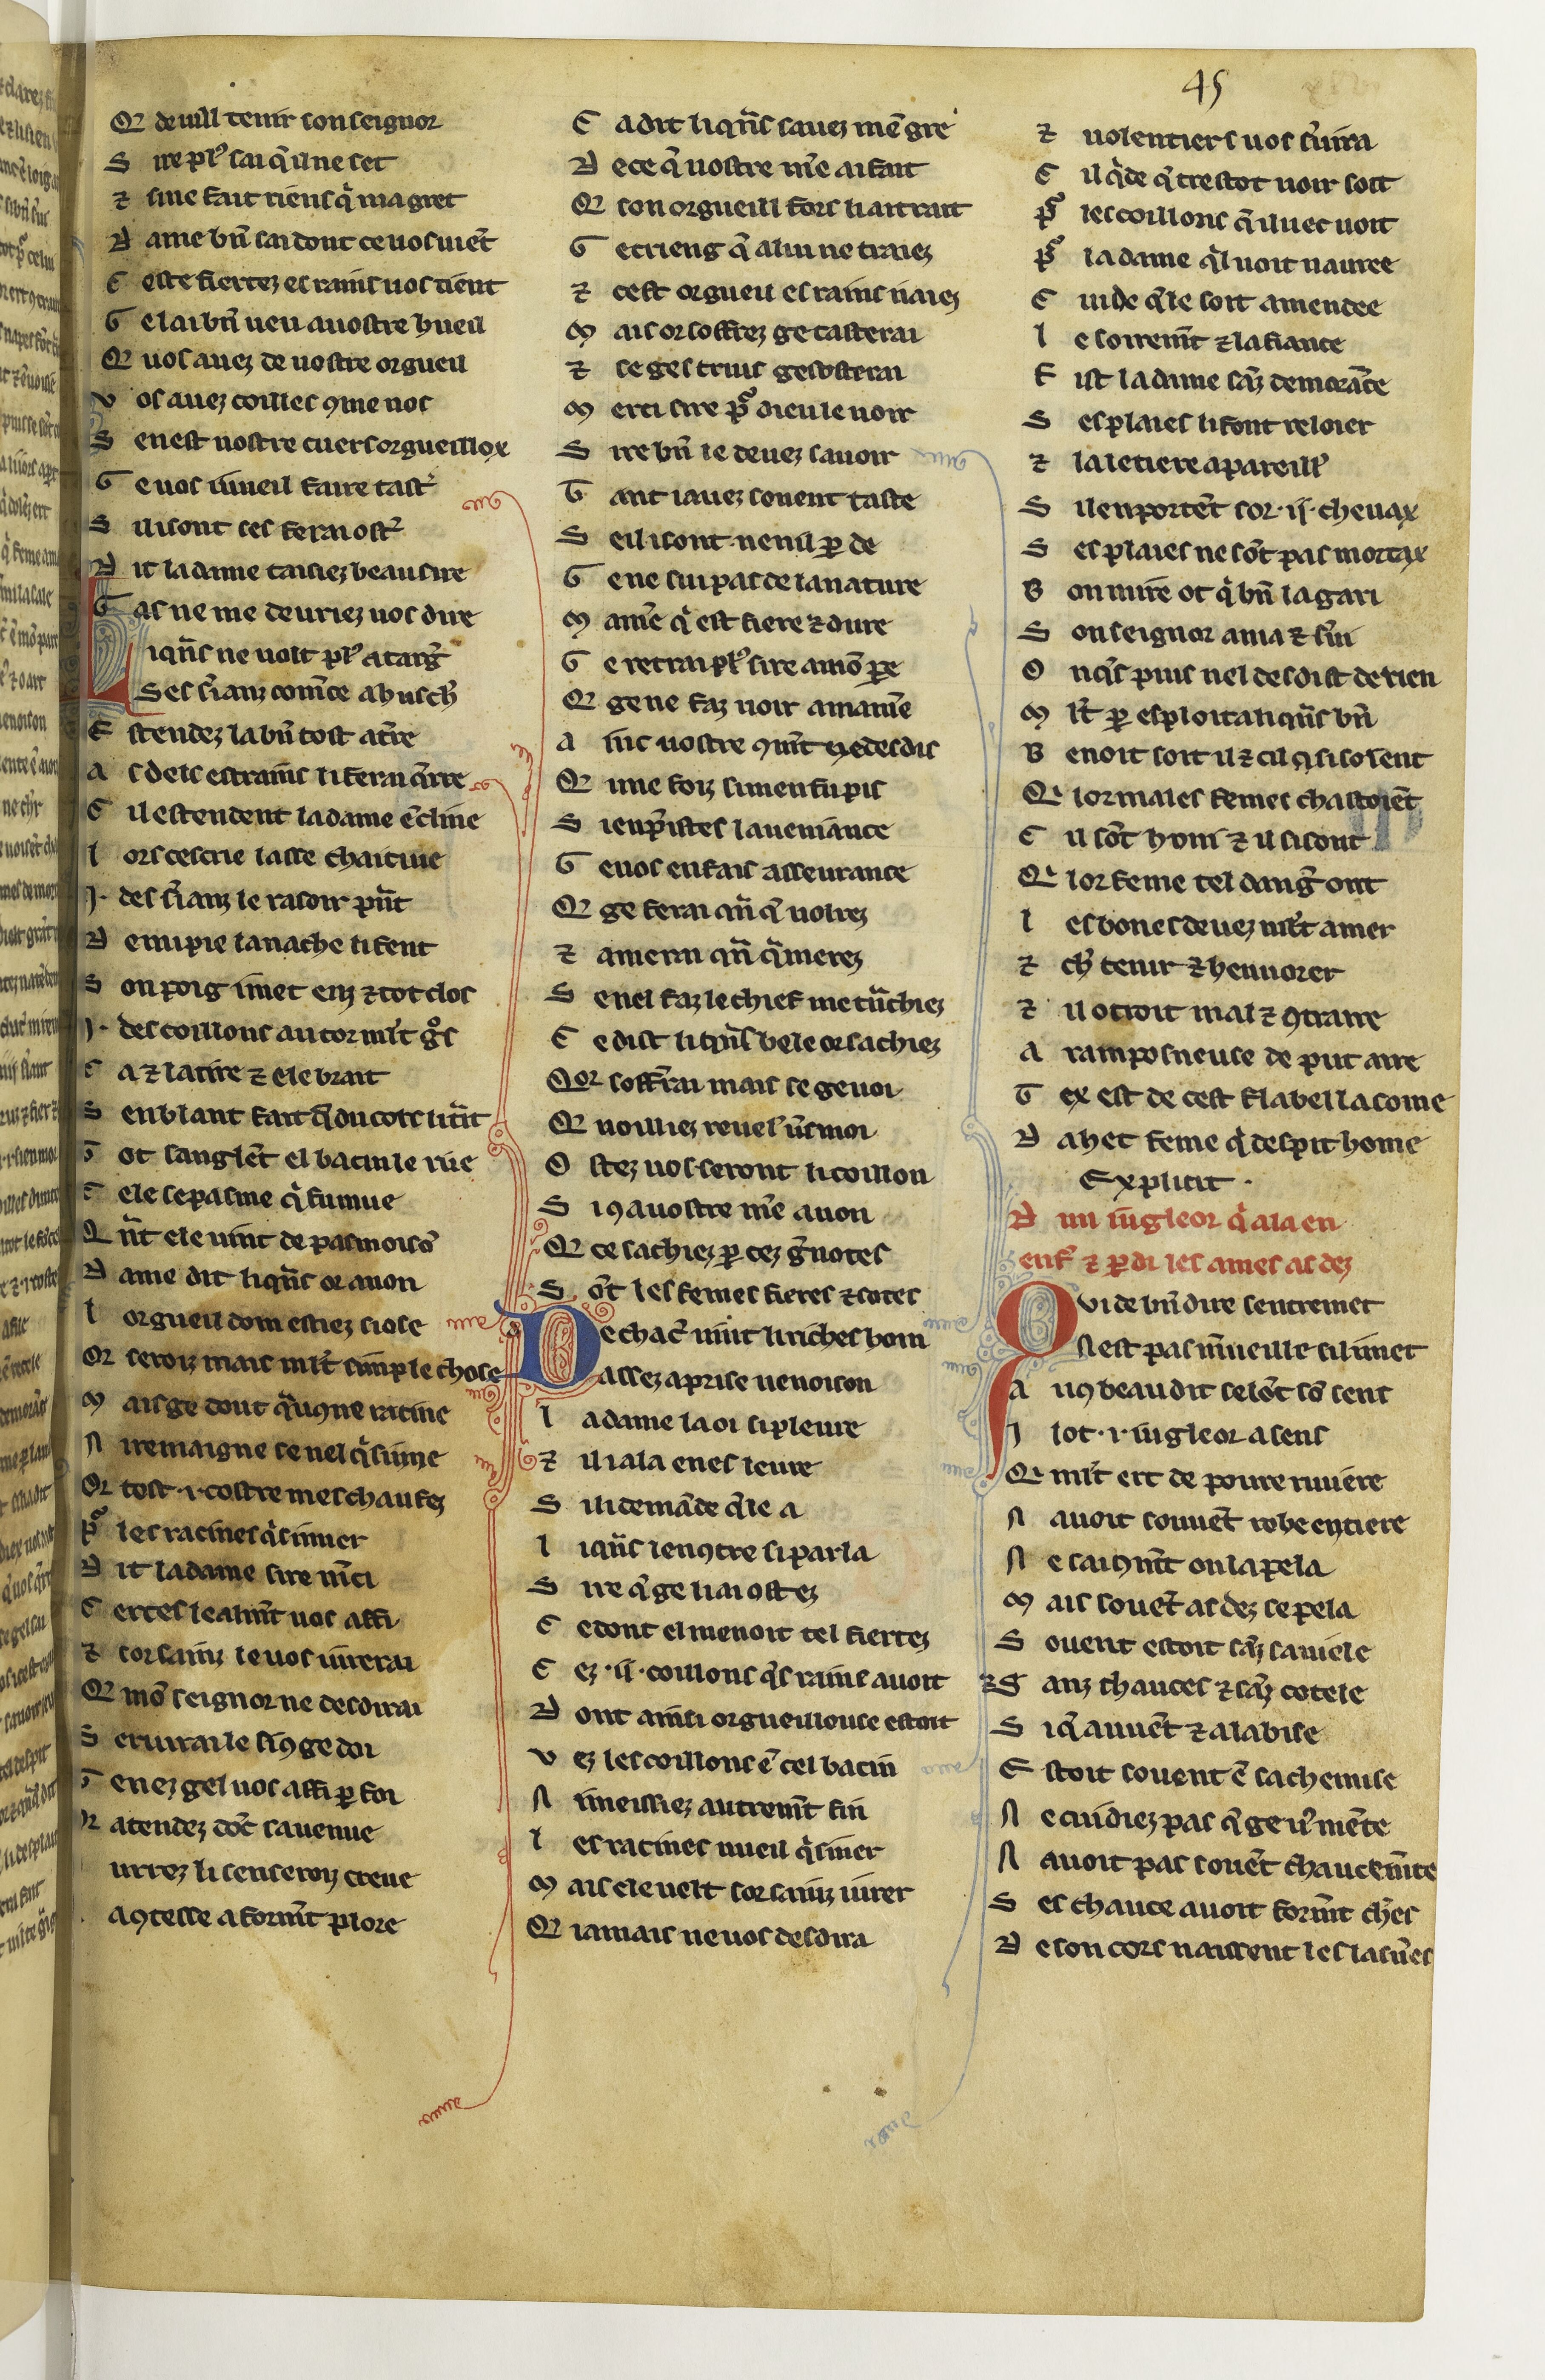 45
Qr deuill tenir son seignor
S ire plꝰ sai q̄ il ne set
⁊ sine fait riens q̇ ma gret
D ame bn̄ sai dont ce uos uiēt
C este fiertez es rains uos tient
G e lai bn̄ ueu a uostre hueil
Qr uos auez de uostre orgueil
V os auez coilles ꝯme nos
S en est uostre cuers orgueillox
G e uos i uueil faire tastˀ
S il i sont ses ferai ostˀ
D it la dame taisiez beau sire
G as ne me deuriez uos dire
L i q̄ns ne uolt plꝰ atarg̃
Ses sˀianz comēce a huschˀ
E stendez la bn̄ tost a tˀre
A s dels estranis li ferai q̄rre
C il estendent la dame ēcline
L ors sescrie lasse chaitiue
.I. des sˀianz le rasoir pˀnt
D emi pie la nache li fent
S on poig i met enz ⁊ tot clos
.I. des coillons au tor ml̄t gˢos
C a ⁊ la tire ⁊ ele brait
S enblant fait q̄ du cors li trait
T ot sanglēt el bacin le rue
C ele se pasme q̇ fu mue
Q n̄t ele uint de pasmoisō
D ame dit li q̄ns or auon
L orgueil dom estiez si ose
Qr seroiz mais ml̄t simple chose
M ais ge dout q̄ uꝯne racine
N i remaigne se nel q̇sime
Or tost .i. costre mes chaufez
Pᵒ les racines q̇s imer
D it la dame sire mˀci
C ertes lealmˀt uos affi
⁊ sor sainz le uos iurerai
Qr mō seignor ne desdirai
S eruirai le si ꝯ ge doi
T enez gel uos affi ꝑ foi
Or atendez dōc sa uenue
iurrez li sen seroiz creue
A ꝯtesse a formēt plore
C a dit li q̄ns sauez mē gre
D e ce q̄ uostre mˀe ai fait
Qr son orgueill fors li ai trait
G e crieng q̄ a lui ne traiez
⁊ cest orgueil es rains n aiez
M ais or soffrez ge tasterai
⁊ se ges truis ges osterai
M erci sire pᵒ dieu le uoir
S ire bn̄ le deuez sauoir
T ant i auez souent taste
S eil i sont nenil ꝑ de
G e ne sui pas de la nature
M a mˀe q̇ est fiere ⁊ dure
G e retrai plꝰ sire a mō pˀe
Qr ge ne faz uoir a ma mˀe
A inc uostre ꝯmˀt ne desdis
Qr une foiz si men fu pis
S i en pˀistes la ueniance
G e uos en fais asseurance
Qr ge ferai q̄n q̄ uolrez
⁊ amerai q̄n q̄ merez
S e nel faz le chief me trēchiez
C e dist li q̄ns bele or sachiez
Qor soffˀrai mais se ge uoi
Qr uoilliez reuelˀ ūs moi
O stez uos seront li coillon
S i ꝯ a uostre mˀe auon
Qr ce sachiez ꝑ cez gˀnotes
S ōt les femes fieres ⁊ sotes
De chacˀ uint li riches hom
Assez a prise uenoison
L a dame la oi si pleure
⁊ il i ala en es leure
S i li demāde q̄ le a
L i q̄ns lencontre si parla
S ire q̄ ge li ai ostez
C e dont el menoit tel fiertez
C ez .ii. coillons q̇s rains auoit
D ont ainsi orgueillouse estoit
V ez les coillons ē cel bacin
N i meissiez autremˀt fin
L es racines uueil q̇siner
M ais ele uelt sor sainz iurer
Qr iamais ne uos desdira
⁊ uolentiers uos sˀuira
C il q̇de q̄ trestot uoir soit
Pᵒ les coillons q̄ iluec uoit
Pᵒ la dame q̄l uoit nauree
C uide q̄ le soit amendee
L e soiremˀt ⁊ la fiance
F ist la dame sāz demorāce
S es plaies li font reloier
⁊ la letiere apareillˀ
S i len portēt sor .ii. cheuax
S es plaies ne sōt pas mortax
B on mire ot q̇ bn̄ la gari
S on seignor ama ⁊ sˀui
O nq̄s puis nel desdist de rien
M lt̄ ꝑ esploita li q̄ns bn̄
B enoit soit il ⁊ cil q̇ si osent
Qi lor males femes chastoiēt
C il sōt honi ⁊ il si sont
Qi lor feme tel dangˀ ont
L es bones deuez ml̄t amer
⁊ chˀ tenir ⁊ hennorer
⁊ il otroit mal ⁊ ꝯtraire
A ramposneuse de put aire
T ex est de cest flabel la some
D ahet feme q̇ despit home
Explicit.
D un iugleor q̇ ala en
enfˀ ⁊ ꝑdi les ames as dez
Qui de bn̄ dire sentremet
Nest pas mˀueille sil i met
A uꝯ beau dit selōc sō sens
N lot .i. iugleor a sens
Qi ml̄t ert de poure riuiere
N auoit souuēt robe entiere
N e sai ꝯmˀt on lapela
M ais souēt as dez se pela
S ouent estoit sāz sa uiele
⁊ S anz chauces ⁊ sāz cotele
S i q̄ au uēt ⁊ a la bise
E stoit souent ē sa chemise
N e cuidiez pas q̄ ge uˀ mēte
N auoit pas souēt chaucemˀte
S es chauce auoit formēt chˀes
D e son cors naissent les lasnˀes